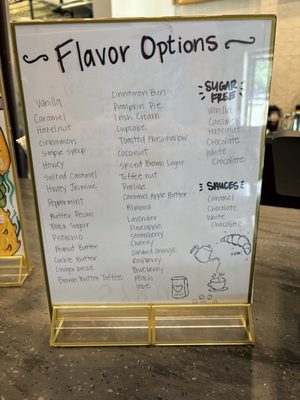 Flavor Options
Vanilla
Caramel
Hazelnut
cinnamon
simple syrup
Honey
Salted Caramel
Honey Jasmine
Peppermint
Butter Pecan
Black Sugar
Pistachio
Peanut Butter
Cookie Butter
Gingerbread
Brown Butter Toffee
Cinnamon Bun
Pumpkin Pie
Irish Cream
Cupcake
Toasted Marshmallow
Coconut
Spiced Brown Sugar
Toffee nut
Praline
Caramel Apple Butter
Almond
Lavender
Pineapple
Strawberry
Cherry
candied orange
Raspberry
Blueberry
Peach
SUGAR
FREE
Vanilla
Caramel
Hazelnut
Chocolate
White
Chocolate
SAUCES
Caramel
Chocolate
White
Chocolate